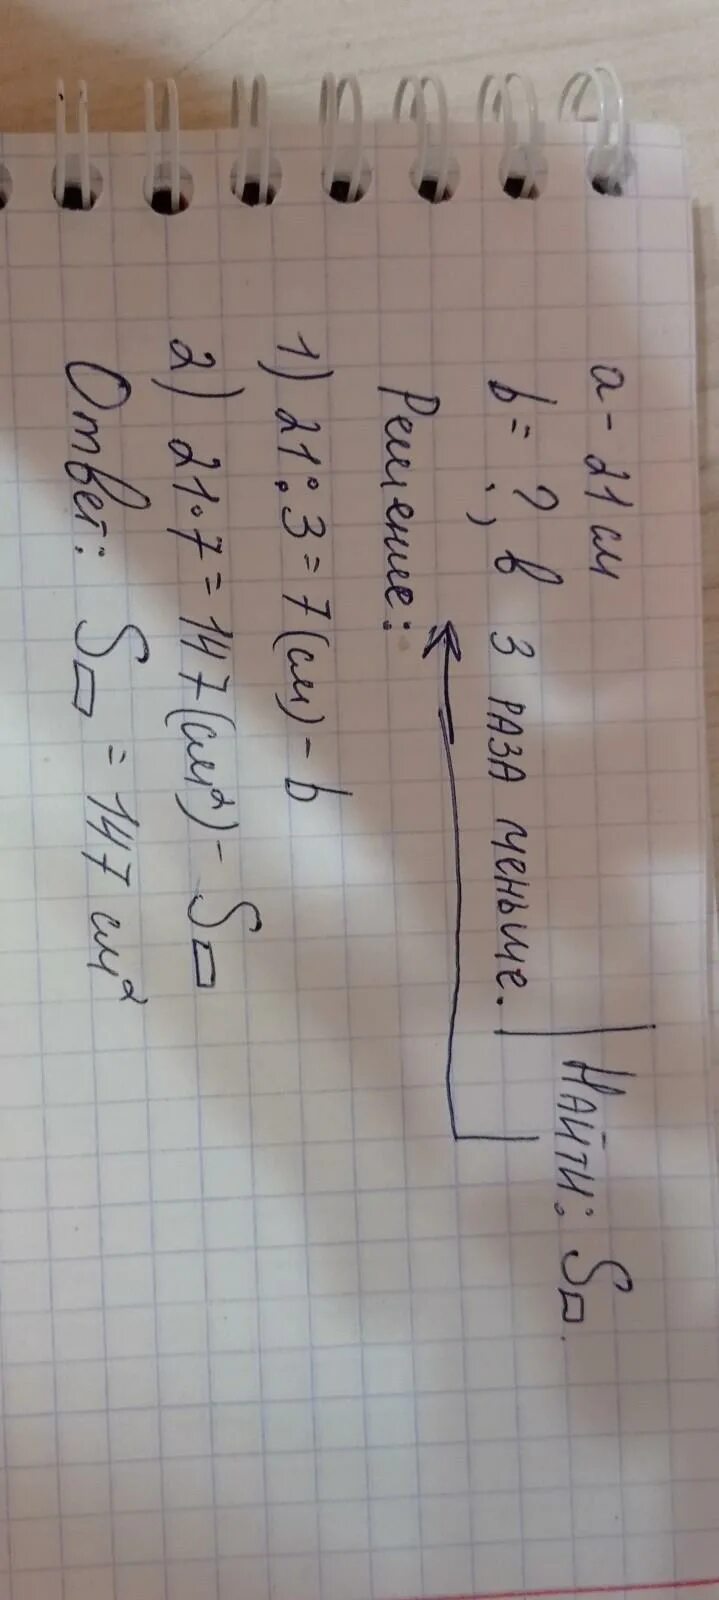 a - 21 см
b = ?, в 3 раза меньше. Найти: S▭.
Решение:
1) 21:3=7(см) - b
2) 21·7=147(см²) - S▭
Ответ: S▭ = 147 см²